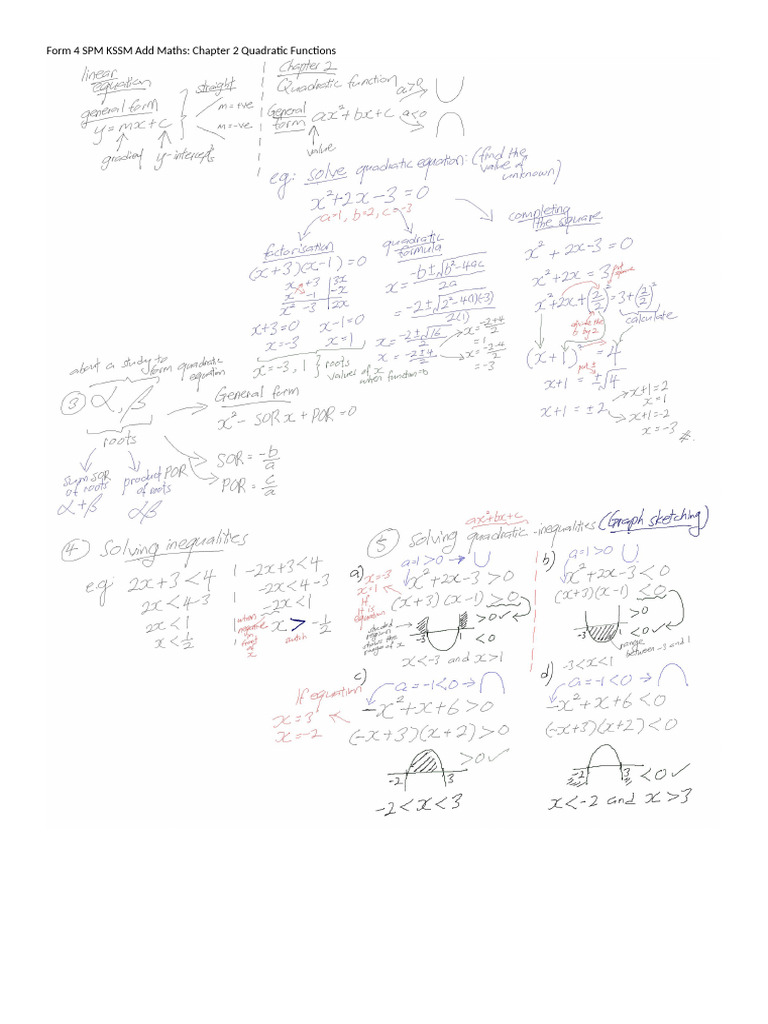 Form 4 SPM KSSM Add Maths: Chapter 2 Quadratic Functions
linear equation
general form
y = mx + c
gradient
y-intercepts
straight
m = +ve
m = -ve
Chapter 2
Quadratic function
General form
ax² + bx + c
a>0
a<0
value
eg: solve quadratic equation: (find the value of unknown)
x² + 2x - 3 = 0
a=1, b=2, c=-3
factorisation
(x+3)(x-1) = 0
x +3 | 3x
x -1 | -x
x² -3 | 2x
x+3=0 x-1=0
x=-3 x=1
x = -3, 1 } roots
values of x when function=0
quadratic formula
x = -b±√b²-4ac / 2a
= -2±√2²-4(1)(-3) / 2(1)
x = -2±√16 / 2
x = -2±4 / 2
x = -2+4 / 2
= 1
x = -2-4 / 2
= -3
completing the square
x² + 2x - 3 = 0
x² + 2x = 3
put square
x² + 2x + (2/2)² = 3 + (2/2)²
divide the b by 2
calculate
(x + 1)² = 4
put ±
x+1 = ±√4
x+1 = ±2
x+1=2
x=1
x+1=-2
x=-3 #.
about a study to form quadratic equation
③ α, β
roots
sum SOR of roots
α+β
product POR of roots
αβ
General form
x² - SOR x + POR = 0
SOR = -b/a
POR = c/a
④ Solving inequalities
e.g: 2x+3 < 4
2x < 4-3
2x < 1
x < 1/2
-2x+3 < 4
-2x < 4-3
-2x < 1
x > -1/2
when negative in front of x
switch
ax²+bx+c
⑤ Solving quadratic -inequalities (Graph sketching)
a) a=1>0 → ∪
x² + 2x - 3 > 0
(x+3)(x-1) > 0
x=-3
x=1
If it is equation
shaded region shows the range of x
-3 1
>0 ✓
<0
x < -3 and x > 1
b) a=1>0 ∪
x² + 2x - 3 < 0
(x+3)(x-1) < 0
-3 1
>0
<0 ✓
range between -3 and 1
-3 < x < 1
c) a = -1 < 0 → ∩
-x² + x + 6 > 0
(-x+3)(x+2) > 0
If equation
x = 3
x = -2
-2 3
>0 ✓
-2 < x < 3
d) a = -1 < 0 → ∩
-x² + x + 6 < 0
(-x+3)(x+2) < 0
-2 3
<0 ✓
x < -2 and x > 3